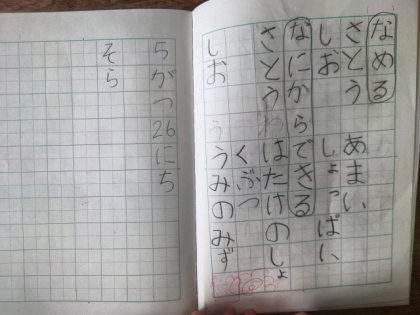 なめる
さとう　あまい
しお　しょっぱい
なにからできる
さとう　はたけのしょ
くぶつ
しお　うみのみず
5がつ26にち
そら